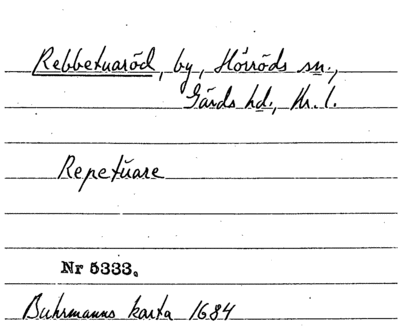 Rebbetuaröd, by, Hörröds sn.,
Gärds hd., Kr. l.
Repetúare
Nr 5333.
Buhrmanns karta 1684